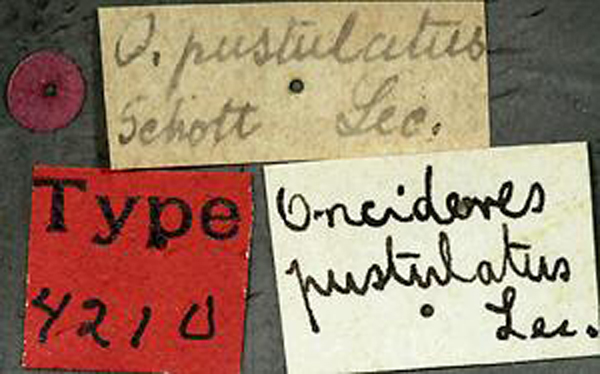 O. pustulatus
Schott Lec.
Type
4210
Oncideres
pustulatus
Lec.